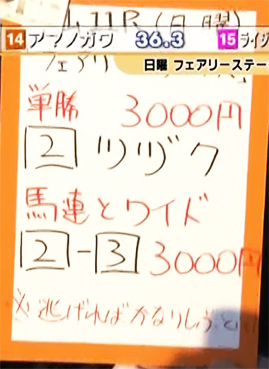 11R (日曜)
14 アマノガワ 36.3 15 ライジ
日曜 フェアリーステー
フェアリ
単勝 3000円
2 ツヅク
馬連とワイド
2-3 3000円
※逃げればかなりしぶとい